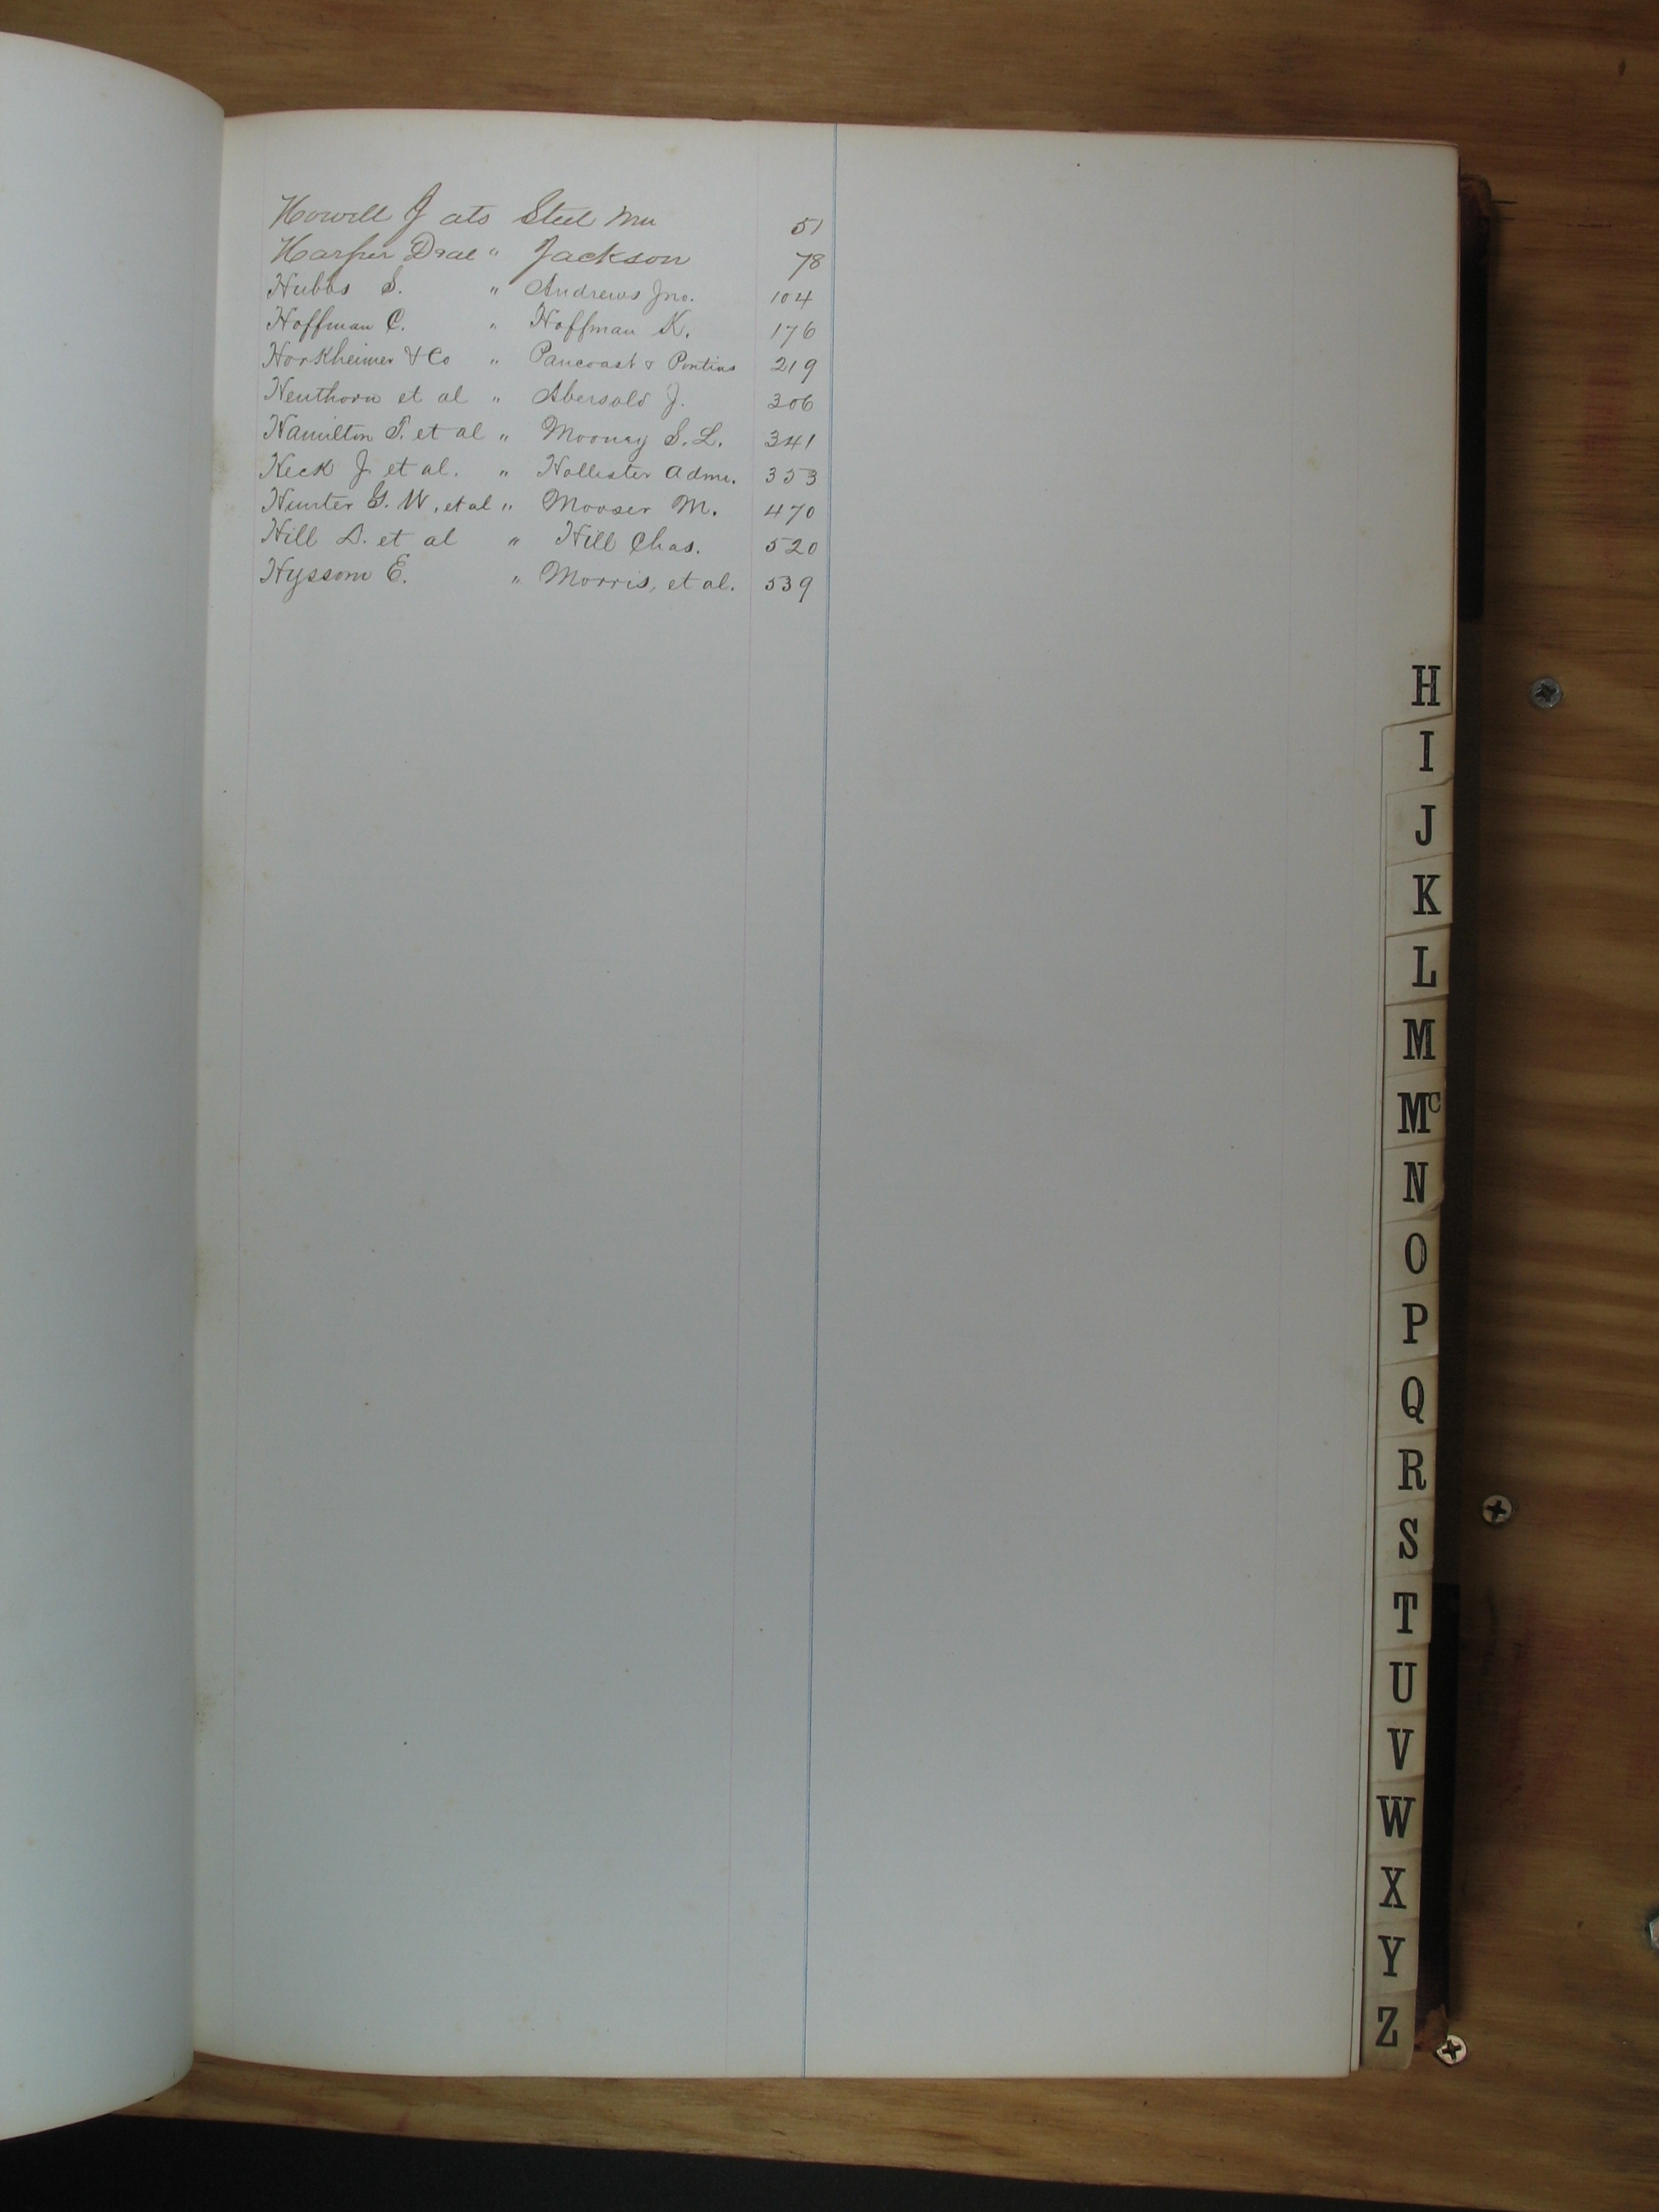 Howell J ats Steel Wm 51
Harper Drae " Jackson 78
Hubbs S. " Andrews Jno. 104
Hoffman C. " Hoffman K. 176
Horkheimer & Co " Pancoast & Pontius 219
Henthorn et al " Abersold J. 306
Hamilton T. et al " Mooney S. L. 341
Heck J. et al. " Hollister Admr. 353
Hunter G. W., et al " Mooser M. 470
Hill D. et al " Hill Chas. 520
Hyssom E. " Morris, et al. 539
H
I
J
K
L
M
Mc
N
O
P
Q
R
S
T
U
V
W
X
Y
Z